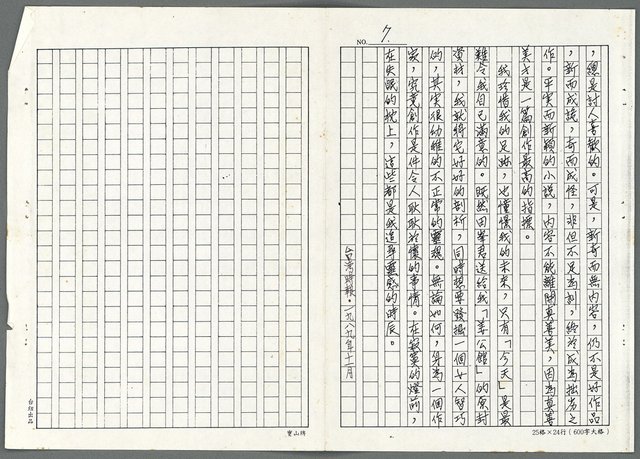 NO. 7.
，總是討人喜歡的。可是，新奇而無內容，仍不是好作品
，新而成謊，奇而成怪，非但不足為創，終於成為拙劣之
作。平實而新穎的小說，內容不能離開真善美，因為真善
美才是一篇創作最高的指標。
我珍惜我的足跡，也憧憬我的未來，只有「今天」是最
難令我自己滿意的。既然田峯君送給我「姜公館」的原封
資材，我就將它好好的剖析，同時想要發掘一個女人智巧
的，其實很幼雅的不正常的靈魂。無論如何，身為一個作
家，究竟創作是件令人耿耿於懷的事情。在寂寞的燈前，
在失眠的枕上，這些都是我追尋靈感的時辰。
台灣時報・一九八九年十一月
25格×24行(600字大格)
寶山牌
台紐出品